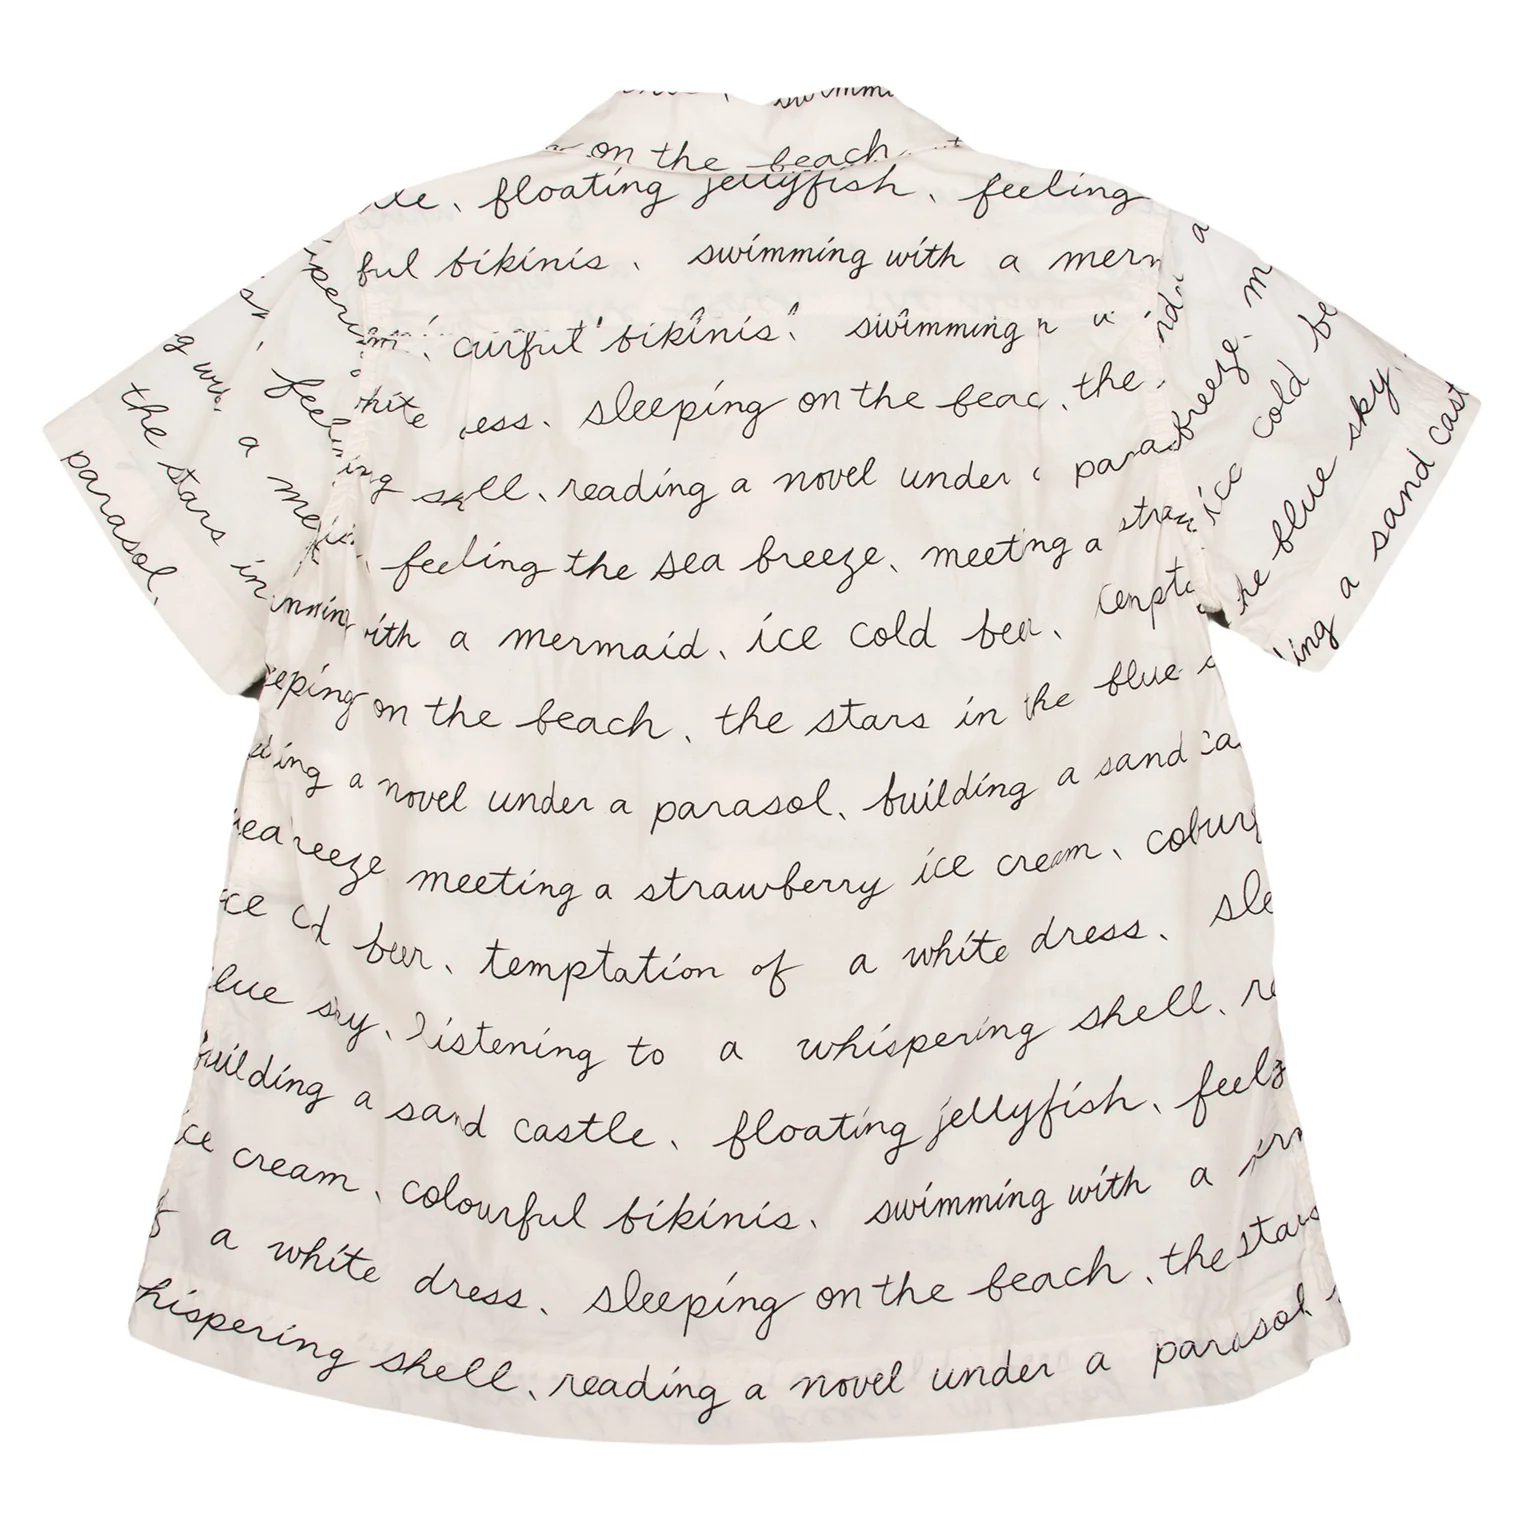 swimmi
on the beach
le, floating jellyfish, feeling
ful bikinis, swimming with a merm
urful bikinis, swimming
hite ess, sleeping on the beac, the
ing sell, reading a novel under parasol
feeling the sea breeze, meeting a straw
ith a mermaid, ice cold beer, tempta
eeping on the beach, the stars in the blue s
ding a novel under a parasol, building a sand ca
sea reeze meeting a strawberry ice cream, colour
ice cd beer, temptation of a white dress, sle
lue sky, listening to a whispering shell, re
building a sand castle, floating jellyfish, feel
ice cream, colourful bikinis, swimming with a
of a white dress, sleeping on the beach, the stars
hispering shell, reading a novel under a parasol
feeling
g with a me
the stars in
parasol,
breeze, m
ice cold be
he blue sky,
ding a sand cast